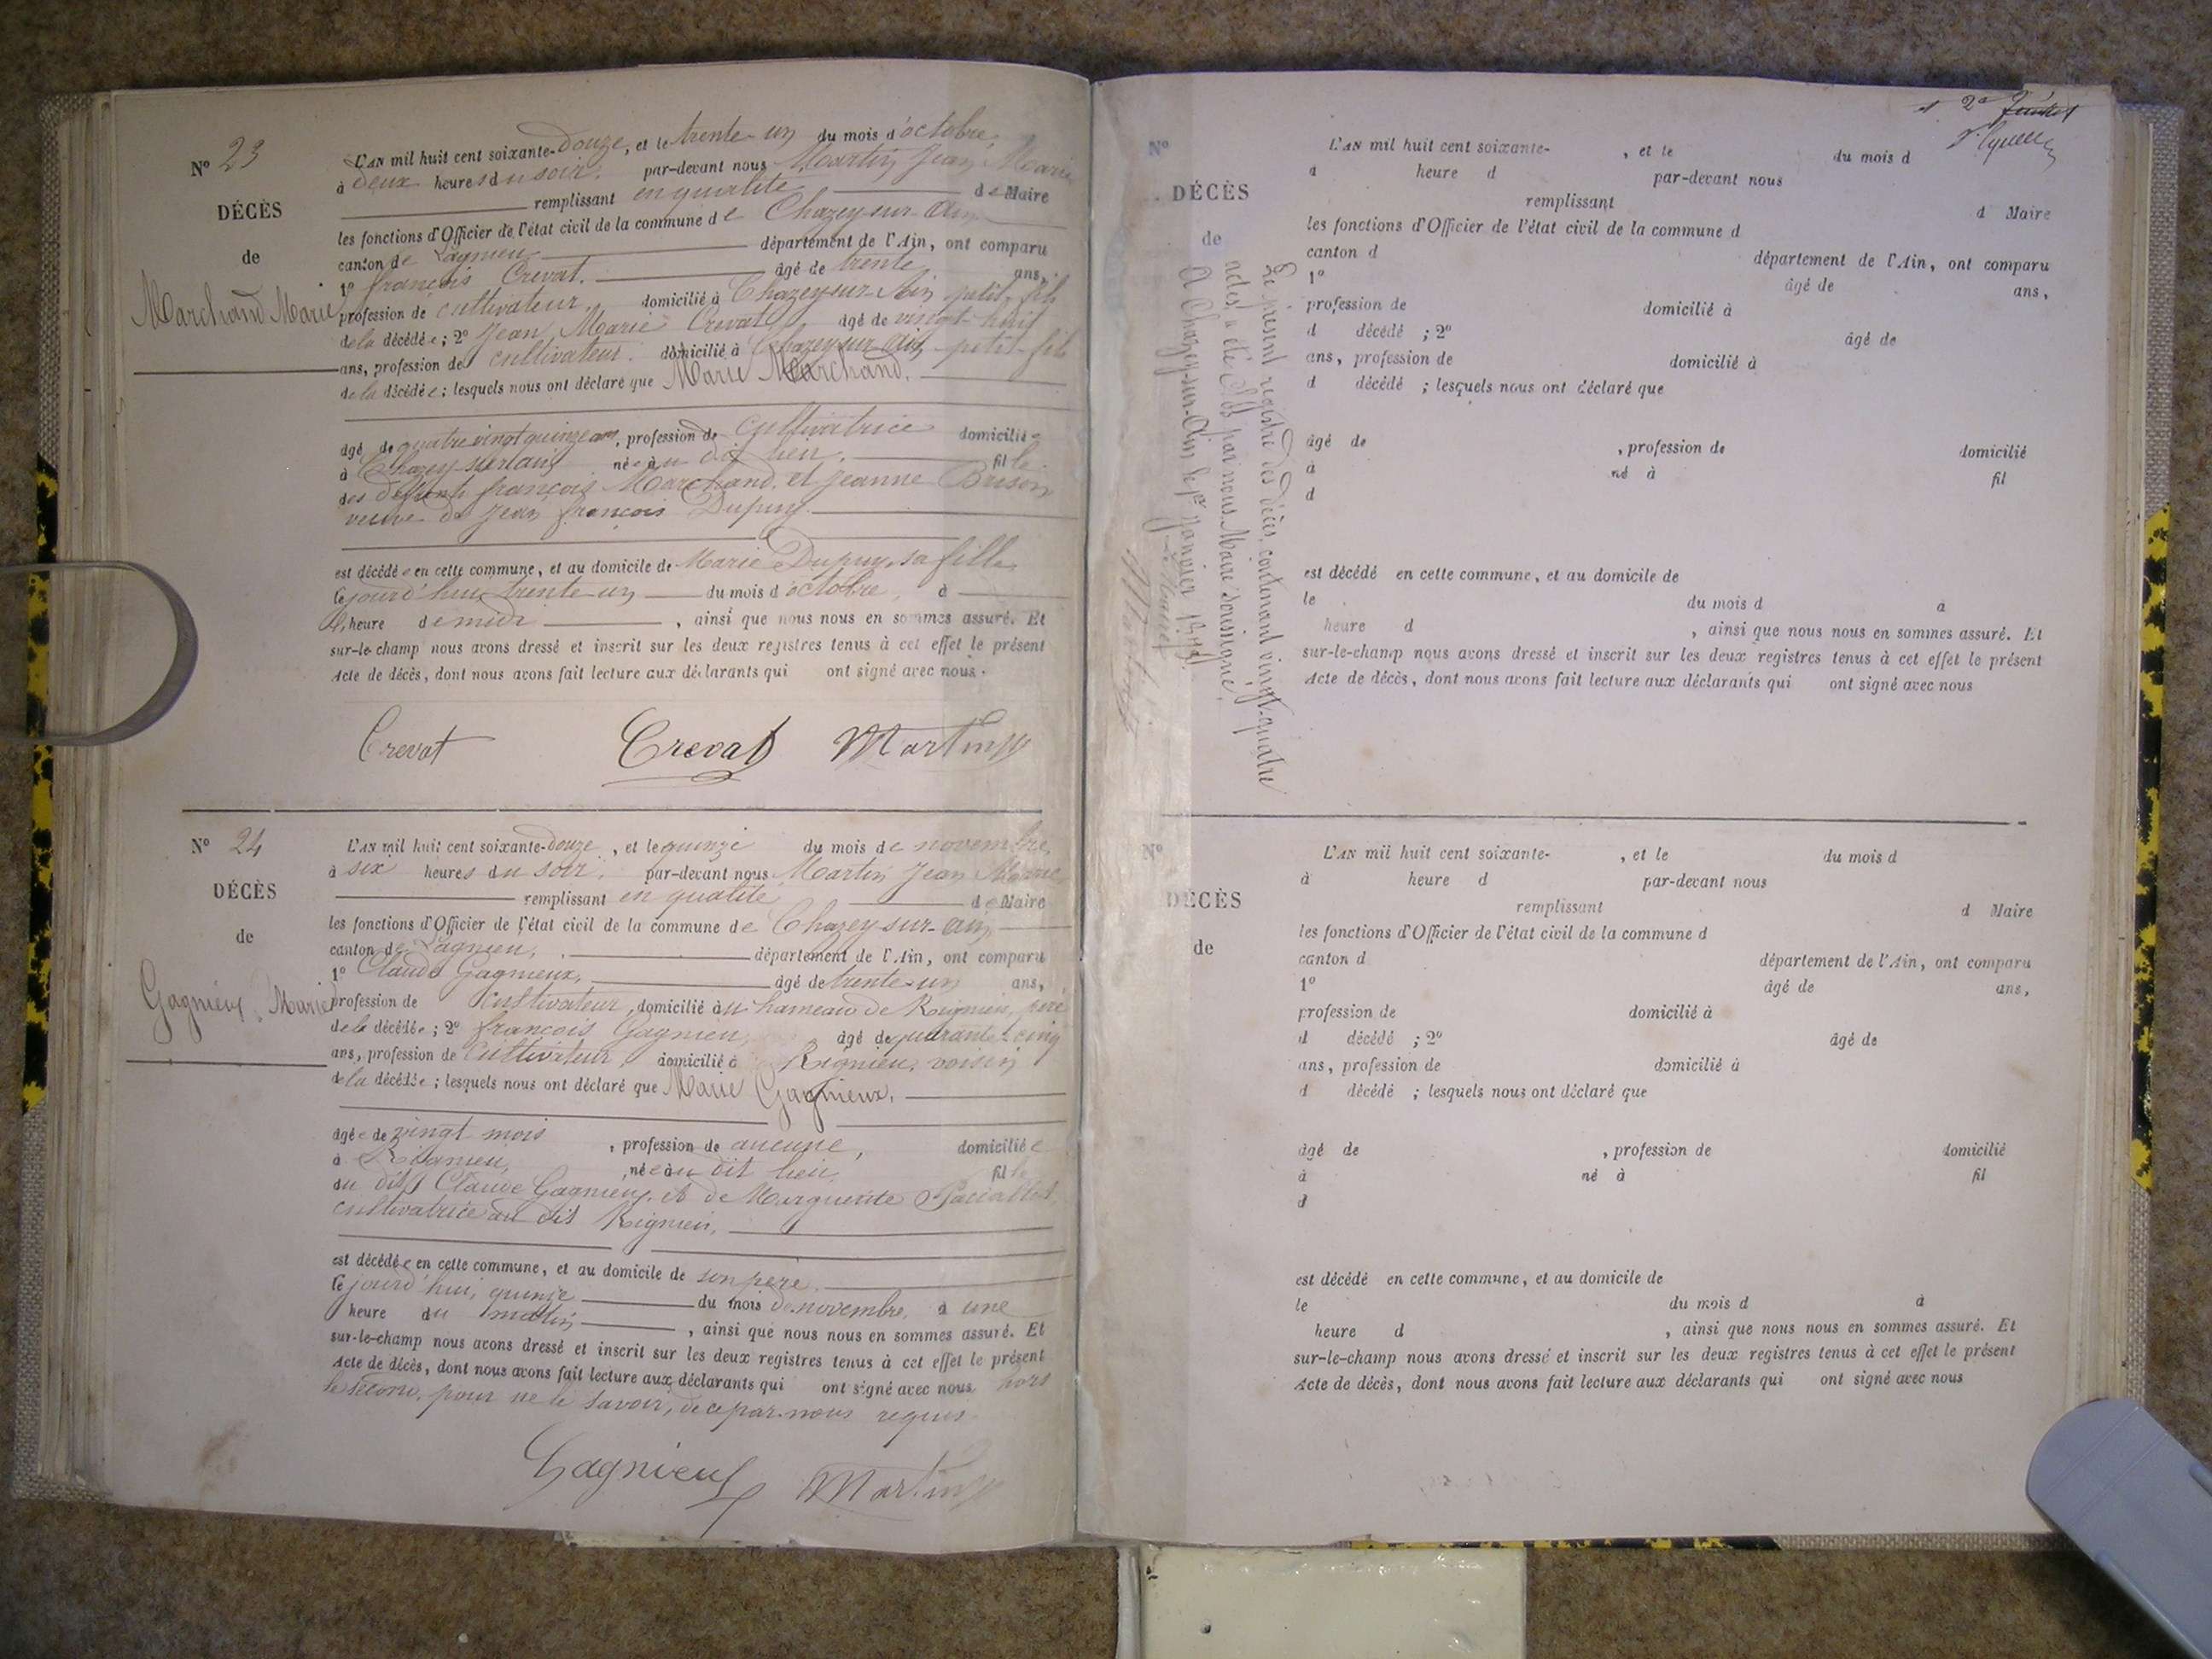 Nº 23
DÉCÈS
de
Marchand Marie
L'AN mil huit cent soixante-Douze, et le trente-un du mois d'octobre,
à deux heures du soir, par-devant nous Martin Jean Marie
remplissant en qualité de Maire
les fonctions d'Officier de l'état civil de la commune de Chazey-sur-Ain
canton de Lagnieu département de l'Ain, ont comparu
1º françois Crevat. âgé de trente ans,
profession de cultivateur, domicilié à Chazey-sur-Ain petit-fils
de la décédée; 2º Jean Marie Crevat âgé de vingt-huit
ans, profession de cultivateur, domicilié à Chazey sur Ain petit-fils
de la décédée; lesquels nous ont déclaré que Marie Marchand,
âgé de quatre vingt quinze ans, profession de cultivatrice domiciliée
à Chazey-sur-ain née au dit lieu, fille
des défunts françois Marchand, et jeanne Brison
veuve de Jean françois Dupuy.
est décédée en cette commune, et au domicile de Marie Dupuy, sa fille
le jourd'hui trente-un du mois d'octobre, à
heure de midi, ainsi que nous nous en sommes assuré. Et
sur-le-champ nous avons dressé et inscrit sur les deux registres tenus à cet effet le présent
Acte de décès, dont nous avons fait lecture aux déclarants qui ont signé avec nous.
Crevat Crevat Martin
Nº 24
DÉCÈS
de
Gagnieux Marie
L'AN mil huit cent soixante-douze, et le quinze du mois de novembre,
à six heures du soir, par-devant nous Martin Jean Marie
remplissant en qualité de Maire
les fonctions d'Officier de l'état civil de la commune de Chazey-sur-ain
canton de Lagnieu, département de l'Ain, ont comparu
1º Claude Gagnieux, âgé de trente-un ans,
profession de Cultivateur, domicilié au hameau de Rignieu, père
de la décédée; 2º françois Gagnieu, âgé de quarante cinq
ans, profession de Cultivateur, domicilié à Rignieu, voisin
de la décédée; lesquels nous ont déclaré que Marie Gagnieux,
âgée de vingt mois, profession de aucune, domiciliée
à Rignieu, née au dit lieu, fille
du dit Claude Gagnieux et de Marguerite
cultivatrice au dit Rignieu,
est décédée en cette commune, et au domicile de son père
le jourd'hui, quinze du mois de novembre, à une
heure du matin, ainsi que nous nous en sommes assuré. Et
sur-le-champ nous avons dressé et inscrit sur les deux registres tenus à cet effet le présent
Acte de décès, dont nous avons fait lecture aux déclarants qui ont signé avec nous hors
le second, pour ne le savoir, de ce par nous requis
Gagnieux Martin
Le présent registre des décès, contenant vingt-quatre
actes, a été clos par nous, Maire soussigné,
A Chazey-sur-Ain le 1er Janvier 1873.
Le Maire
Martin
Nº
DÉCÈS
de
L'AN mil huit cent soixante- , et le du mois d
à heure d par-devant nous
remplissant d Maire
les fonctions d'Officier de l'état civil de la commune d
canton d département de l'Ain, ont comparu
1º âgé de ans,
profession de domicilié à
d décédé ; 2º âgé de
ans, profession de domicilié à
d décédé ; lesquels nous ont déclaré que
âgé de , profession de domicilié
à né à fil
d
est décédé en cette commune, et au domicile de
le du mois d à
heure d , ainsi que nous nous en sommes assuré. Et
sur-le-champ nous avons dressé et inscrit sur les deux registres tenus à cet effet le présent
Acte de décès, dont nous avons fait lecture aux déclarants qui ont signé avec nous
Nº
DÉCÈS
de
L'AN mil huit cent soixante- , et le du mois d
à heure d par-devant nous
remplissant d Maire
les fonctions d'Officier de l'état civil de la commune d
canton d département de l'Ain, ont comparu
1º âgé de ans,
profession de domicilié à
d décédé ; 2º âgé de
ans, profession de domicilié à
d décédé ; lesquels nous ont déclaré que
âgé de , profession de domicilié
à né à fil
d
est décédé en cette commune, et au domicile de
le du mois d à
heure d , ainsi que nous nous en sommes assuré. Et
sur-le-champ nous avons dressé et inscrit sur les deux registres tenus à cet effet le présent
Acte de décès, dont nous avons fait lecture aux déclarants qui ont signé avec nous